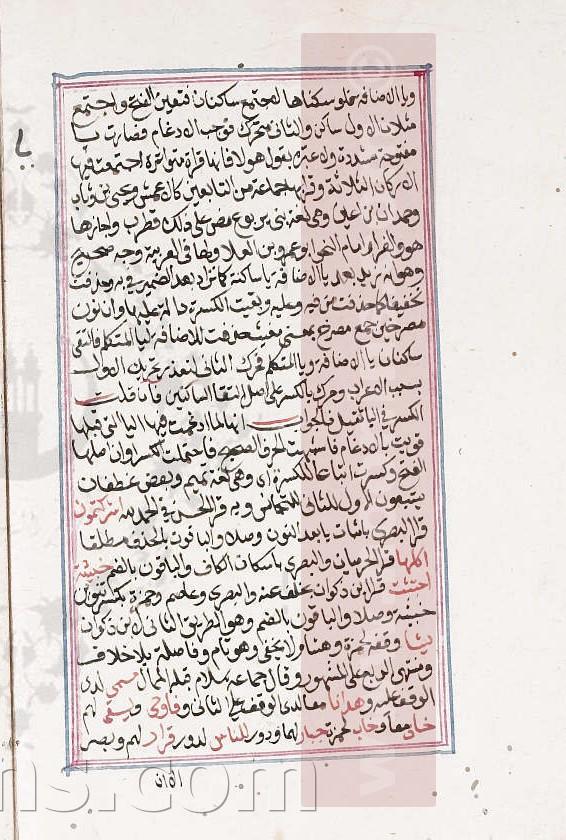 وياء الاضافة محلو سكناها لمجتمع ساكنان فتعين الفتح واجتمع
مثلان الاول ساكن والثاني متحرك فوجب الادغام فصارت ياء
مفتوحة مشددة ولا عبرة بقول هؤلاء فانها قراءة متواترة اجتمعت فيها
الاركان الثلاثة وقرأ بها جماعة من التابعين كالاعمش ويحيى بن وثاب
وحمران بن اعين وهي لغة بني يربوع نص على ذلك قطرب واجازها
هو والفراء وامام النحو ابو عمرو بن العلاء ولها في العربية وجه صحيح
وهو ان يزيد بعد ياء الاضافة ياء ساكنة كما تزاد بعد الضمير في به وحذفت
تخفيفا كما حذفت من فيه وعليه وبقيت الكسرة دالة عليها وان نون
مصرخين جمع مصرخ بمعنى مغيث حذفت للاضافة لياء المتكلم فالتقى
ساكنان ياء الاضافة وياء المتكلم فحرك الثاني لتعذر تحريك الاول
بسبب الاعراب وحرك بالكسر على اصل التقاء الساكنين فان قلت
الكسر في الياء ثقيل فالجواب انها لما ادغمت فيها الياء التي قبلها
قويت بالادغام فاشبهت الحرف الصحيح فاحتملت الكسر وان اصلها
الفتح وكسرت اتباعا للكسرة اي وهي لغة تميم وبعض غطفان
يتبعون الاول للثاني للتجانس وبه قرأ الحسن في الحمد لله اشركتمون
قرأ البصري باثبات ياء بعد النون وصلا والباقون بالحذف مطلقا
اكلها قرأ الحرميان والبصري باسكان الكاف والباقون بالضم خبيثة
اجتثت قرأ ابن ذكوان بخلف عنه والبصري وعاصم وحمزة بكسر تنوين
خبيثة وصلا والباقون بالضم وهو الطريق الثاني لابن ذكوان
يشاء وقفه لحمزة وهشام لا يخفى وهو تام وفاصلة بلا خلاف
ومنتهى الربع على المشهور وقال جماعة سلام قبله الممال مسمى لدى
الوقف عليه وهدانا معا لدى الوقف على الثاني وفاوحى ويسقى لهم
خاف معا وخاب لحمزة جبار لهما ودور للناس لدور قرار لهم وبصر
الاان